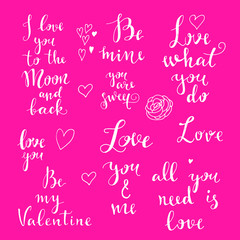 I love
you
to the
Moon
and
back
Be
mine
you are
sweet
Love
what
you
do
love
you
Be
my
Valentine
Love
you
&
me
Love
all you
need is
love